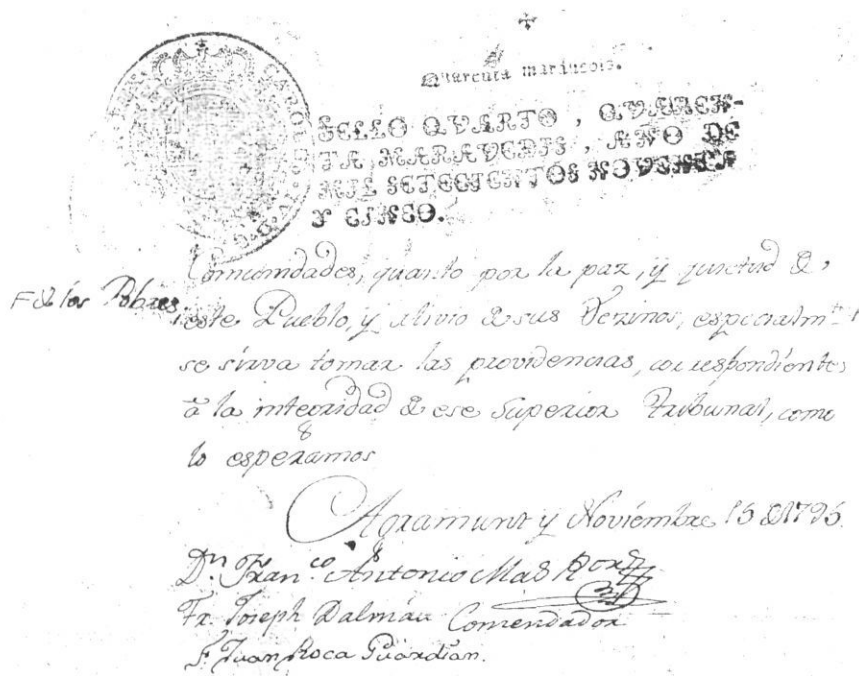 Quarenta maravedis.
SELLO QVARTO, QVAREN-
TA MARAVEDIS, AÑO DE
MIL SETECIENTOS NOVENTA
Y CINCO.
CAROLUS IV D G
Comunidades, quanto por la paz, y quietud &
F & los Pobres este Pueblo, y alivio & sus Vezinos, especialmte F
se sirva tomar las providencias, correspondientes
à la integridad & ese Superior Tribunal, como
lo esperamos
Agramunt y Noviembre 15 & 1795.
Dn. Franco. Antonio Mas Ror
Fr. Joseph Dalmáu Comendador
F. Juan Roca Guardian.